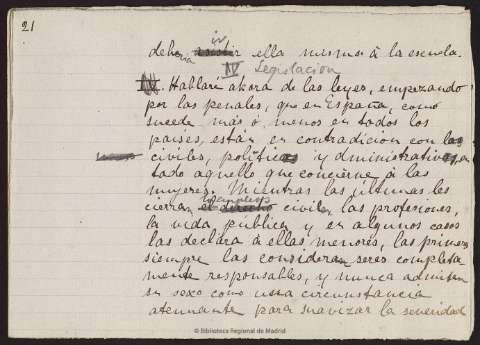 21
debería ir ella misma á la escuela.
IV Legislación
IV. Hablaré ahora de las leyes, empezando
por las penales, que en España, como
sucede más ó menos en todos los
países, están en contradicion con las
civiles, políticas y administrativas, en
todo aquello que concierne á las
mujeres. Mientras las últimas les
cierran empleos civiles, las profesiones,
la vida publica y en algunos casos
las declara á ellas menores, las primeras
siempre las consideran seres completa
mente responsables, y nunca admiten
su sexo como una circunstancia
atenuante para suavizar la severidad
© Biblioteca Regional de Madrid